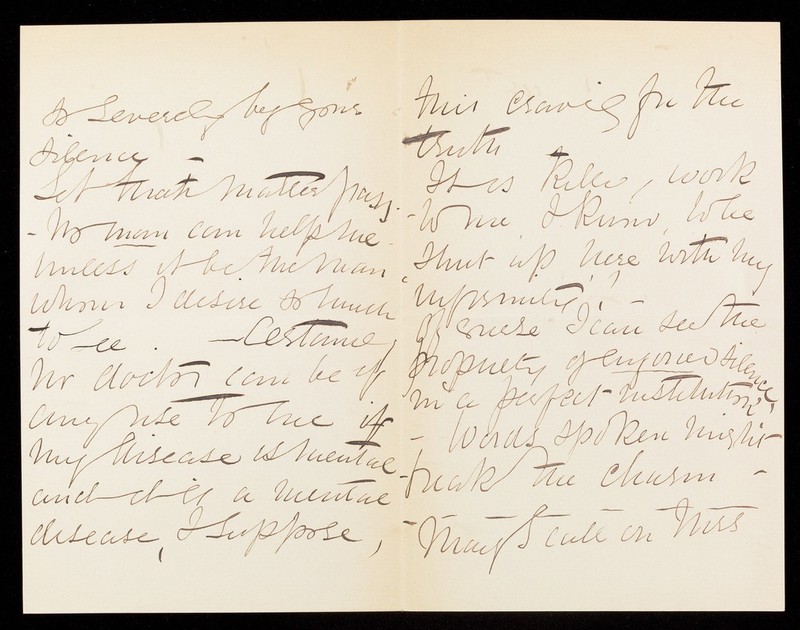 so severely by your
silence –
Let that matter pass.
- No man can help me
unless it be the man
whom I desire so much
to see. – Certainly
no doctor can be of
any use to me if
my disease is mental
and it is a mental
disease, I suppose,
this craving for the
truth
It is killing work
- to me I know, to be
shut up here with my
"infirmity"!
Of course I can see the
propriety of enjoined silence,
"in a perfect institution"
- Words spoken might
break the charm -
- May I call on Miss